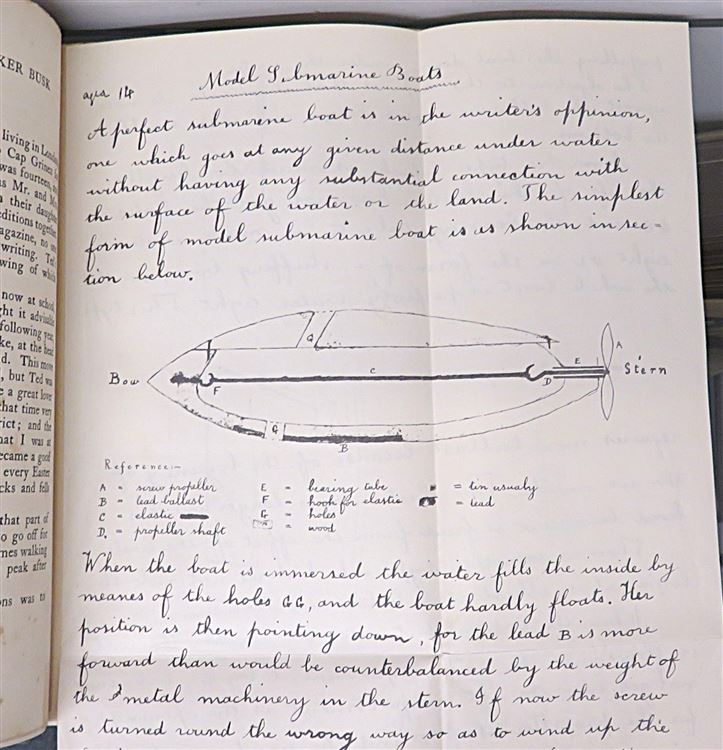 KER BUSK
living in London
Cap Grinez
was fourteen,
s Mr. and
their daugh
editions together
agazine, no
writing. Ted
wing of which
now at school
ght it advisable
following year,
ke, at the head
d. This move
, but Ted was
e a great lover
that time very
rict; and the
hat I was at
ecame a good
every Easter
cks and fells
that part of
o go off for
mes walking
peak after
ons was to
aged 14
Model Submarine Boats
A perfect submarine boat is in the writer's oppinion,
one which goes at any given distance under water
without having any substantial connection with
the surface of the water or the land. The simplest
form of model submarine boat is as shown in sec=
tion below.
G
A
E
C
Bow
Stern
F
D
G
B
Reference:—
A = screw propeller
B = lead ballast
C = elastic
D. = propeller shaft
E = bearing tube
F = hook for elastic
G = holes
= wood
= tin usualy
= lead
When the boat is immersed the water fills the inside by
meanes of the holes GG, and the boat hardly floats. Her
position is then pointing down, for the lead B is more
forward than would be counterbalanced by the weight of
the metal machinery in the stern. If now the screw
is turned round the wrong way so as to wind up the